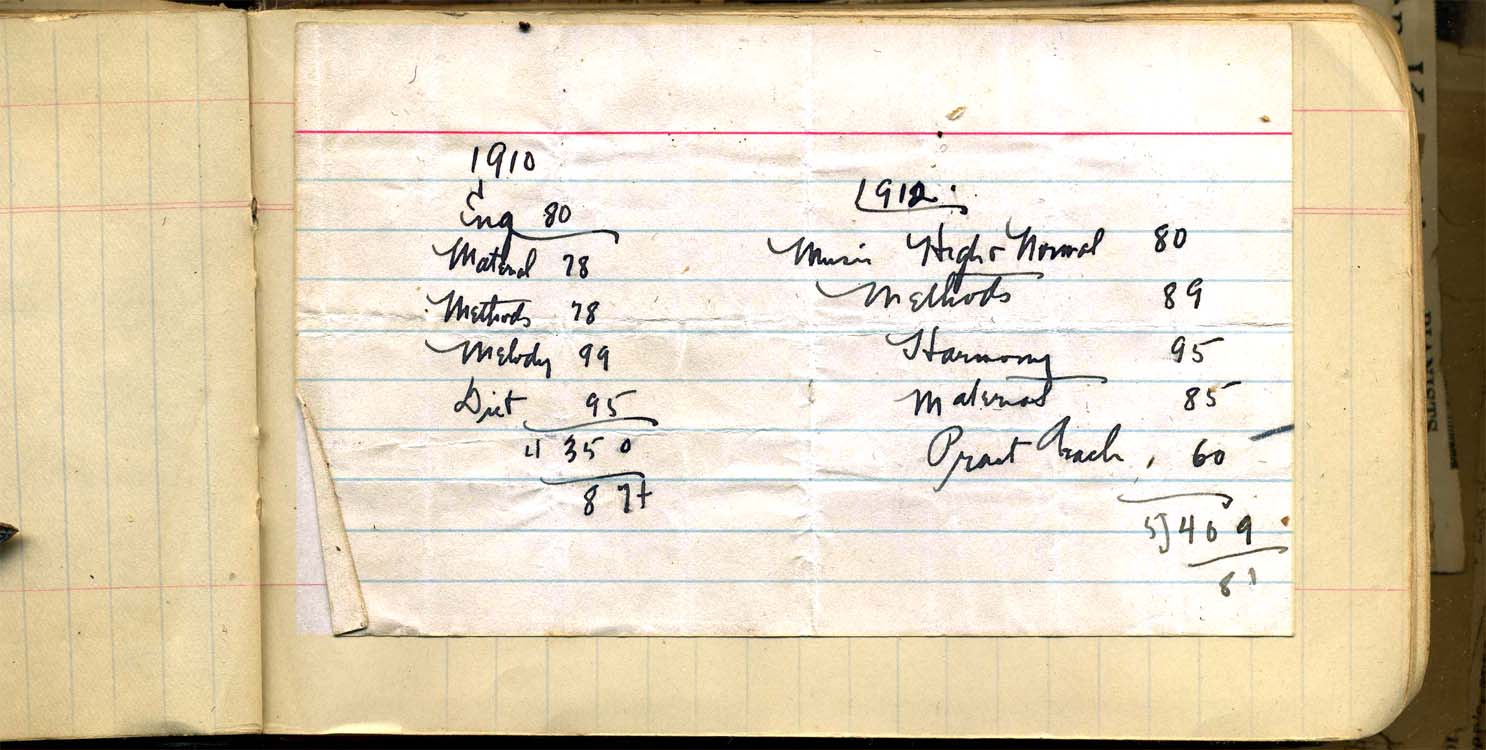 1910
Eng 80
Material 78
Methods 78
Melody 99
Dict 95
4 350
87+
1912.
Music High & Normal 80
Methods 89
Harmony 95
Material 85
Pract Teach. 60
5)409
81
PIANISTS